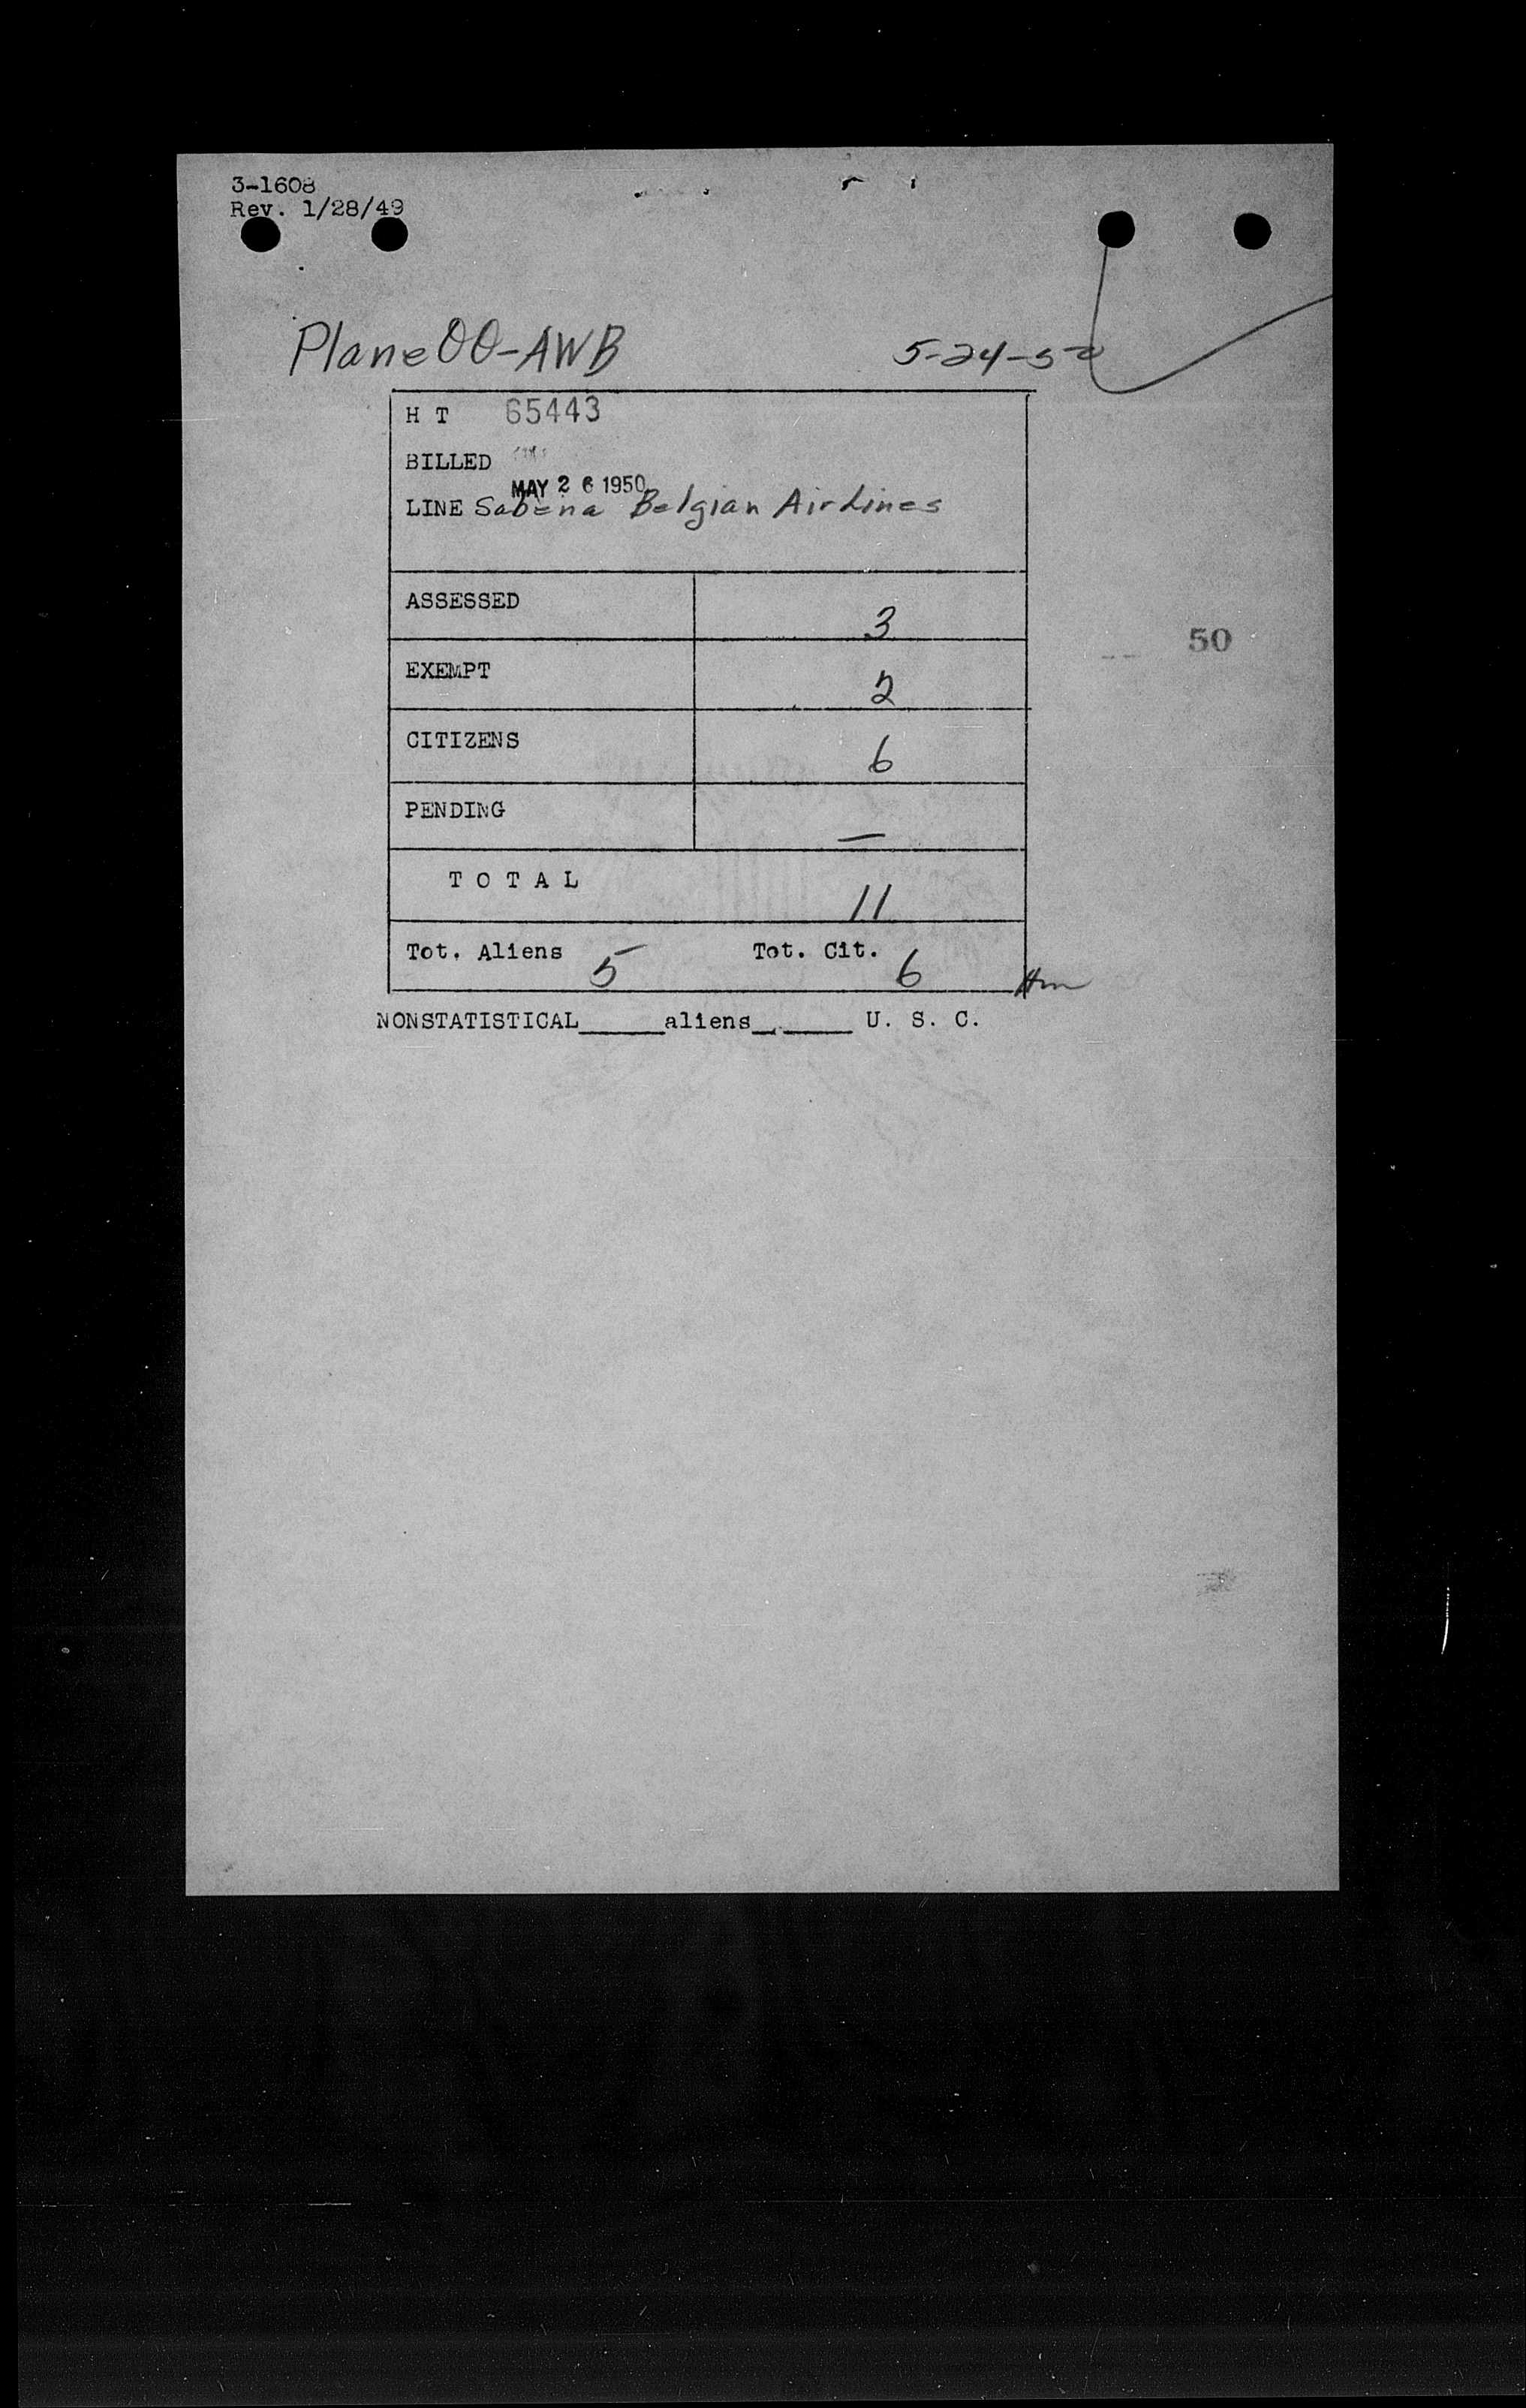 3-1608
Rev. 1/28/49
Plane OO-AWB 5-24-50
H T 65443
BILLED
MAY 26 1950
LINE Sabena Belgian AirLines
ASSESSED 3
50
EXEMPT 2
CITIZENS 6
PENDING —
T O T A L 11
Tot. Aliens 5 Tot. Cit. 6
NONSTATISTICAL_____aliens______ U. S. C.